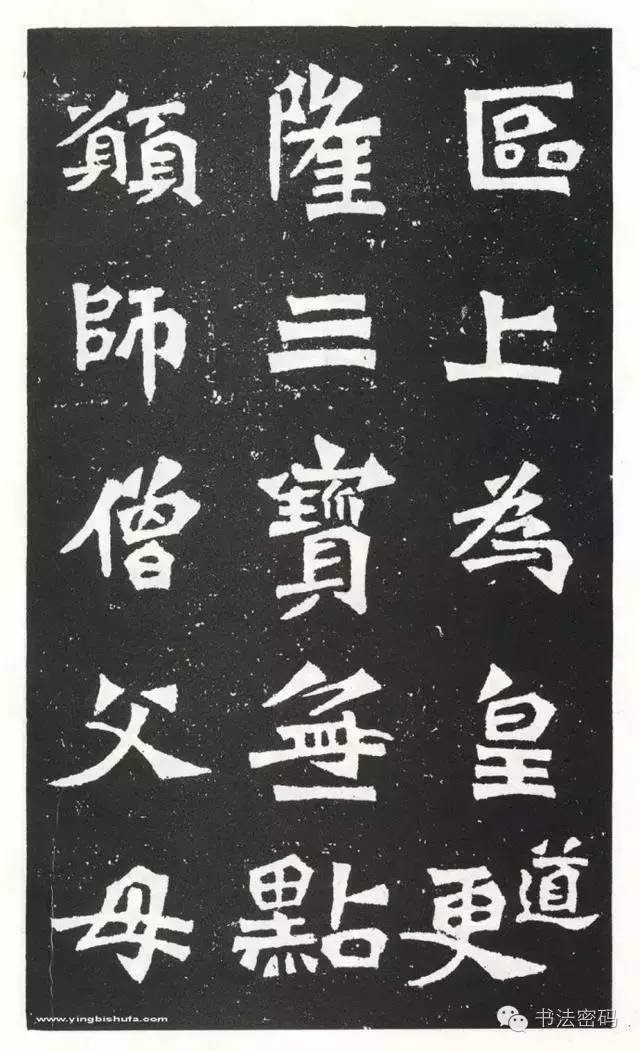 區上為皇道更
隆三寶無點
願師僧父母
www.yingbishufa.com
书法密码